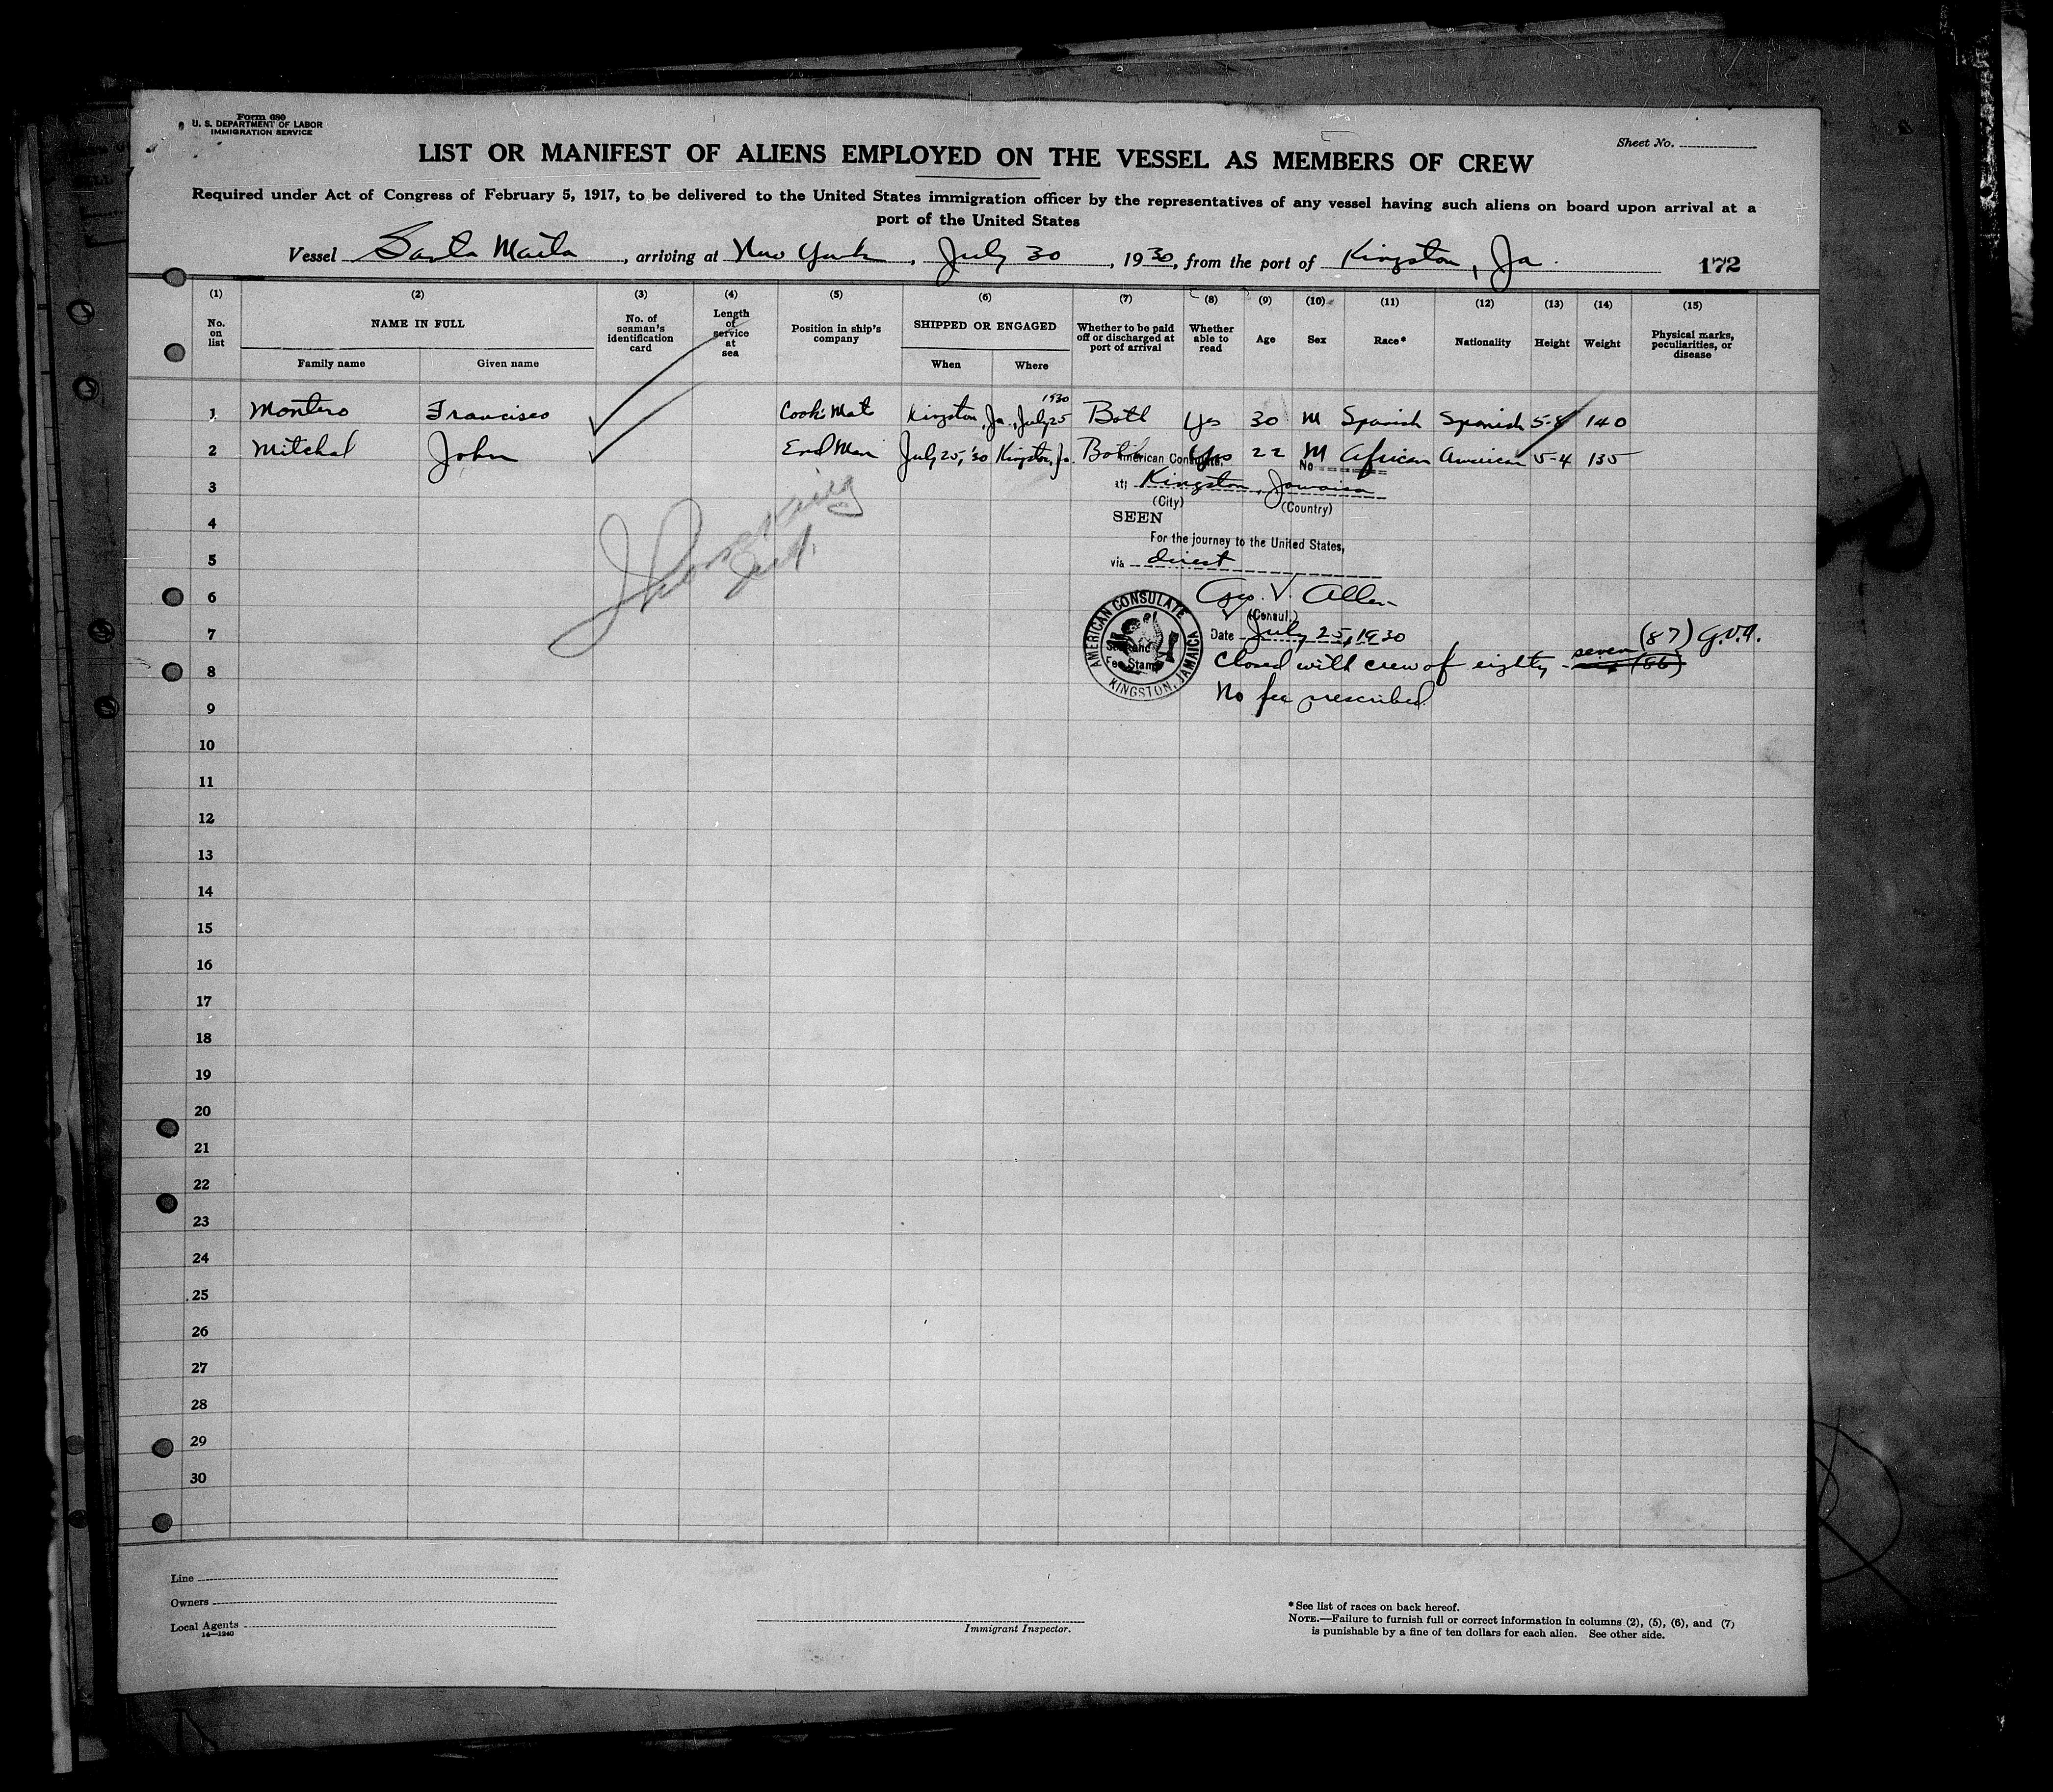 Form 680
U. S. DEPARTMENT OF LABOR
IMMIGRATION SERVICE
Sheet No.
LIST OR MANIFEST OF ALIENS EMPLOYED ON THE VESSEL AS MEMBERS OF CREW
Required under Act of Congress of February 5, 1917, to be delivered to the United States immigration officer by the representatives of any vessel having such aliens on board upon arrival at a
port of the United States
Vessel Santa Marta, arriving at New York, July 30, 1930, from the port of Kingston, Ja. 172
(1) (2) (3) (4) (5) (6) (7) (8) (9) (10) (11) (12) (13) (14) (15)
No. on list
NAME IN FULL
Family name Given name
No. of seaman's identification card
Length of service at sea
Position in ship's company
SHIPPED OR ENGAGED
When Where
Whether to be paid off or discharged at port of arrival
Whether able to read
Age
Sex
Race*
Nationality
Height
Weight
Physical marks, peculiarities, or disease
1 Montero Francisco Cook's Mate Kingston, Ja., July 25 1930 Both Yes 30 M Spanish Spanish 5-8 140
2 Mitchal John End Man July 25, '30 Kingston, Ja. Both Yes 22 M African American 5-4 135
American Consulate, No
3
at Kingston, Jamaica
(City) (Country)
4
SEEN
For the journey to the United States,
5
via direct
6
Geo. V. Allen
(Consul)
7
Date July 25, 1930
(87) G.V.A.
8
Closed with crew of eighty-seven (86)
No fee prescribed
AMERICAN CONSULATE
KINGSTON, JAMAICA
9
10
11
12
13
14
15
16
17
18
19
20
21
22
23
24
25
26
27
28
29
30
Line
Owners
Local Agents
14—1240
Immigrant Inspector.
*See list of races on back hereof.
NOTE.—Failure to furnish full or correct information in columns (2), (5), (6), and (7)
is punishable by a fine of ten dollars for each alien. See other side.